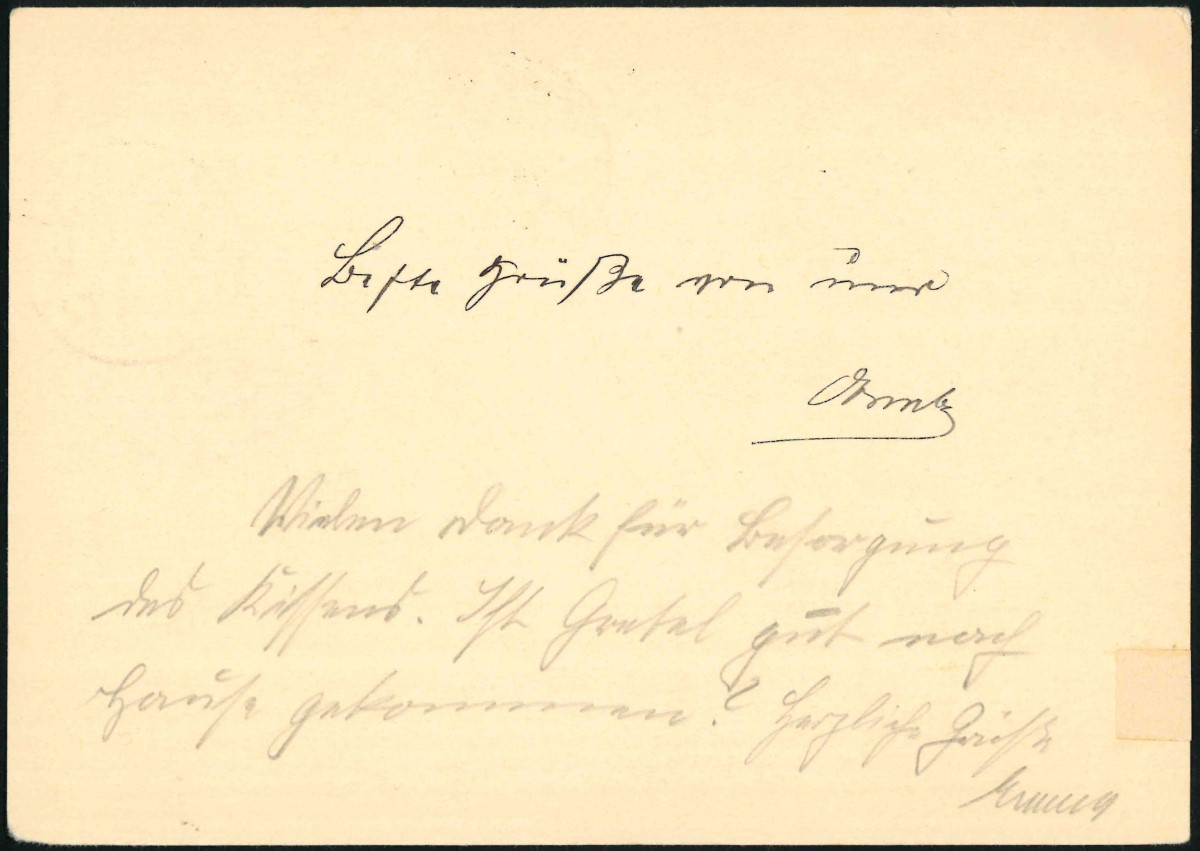 Beste Grüße von uns
Vielen Dank für Besorgung
des Kissens. Ist Gretel gut nach
Hause gekommen? Herzliche Grüße